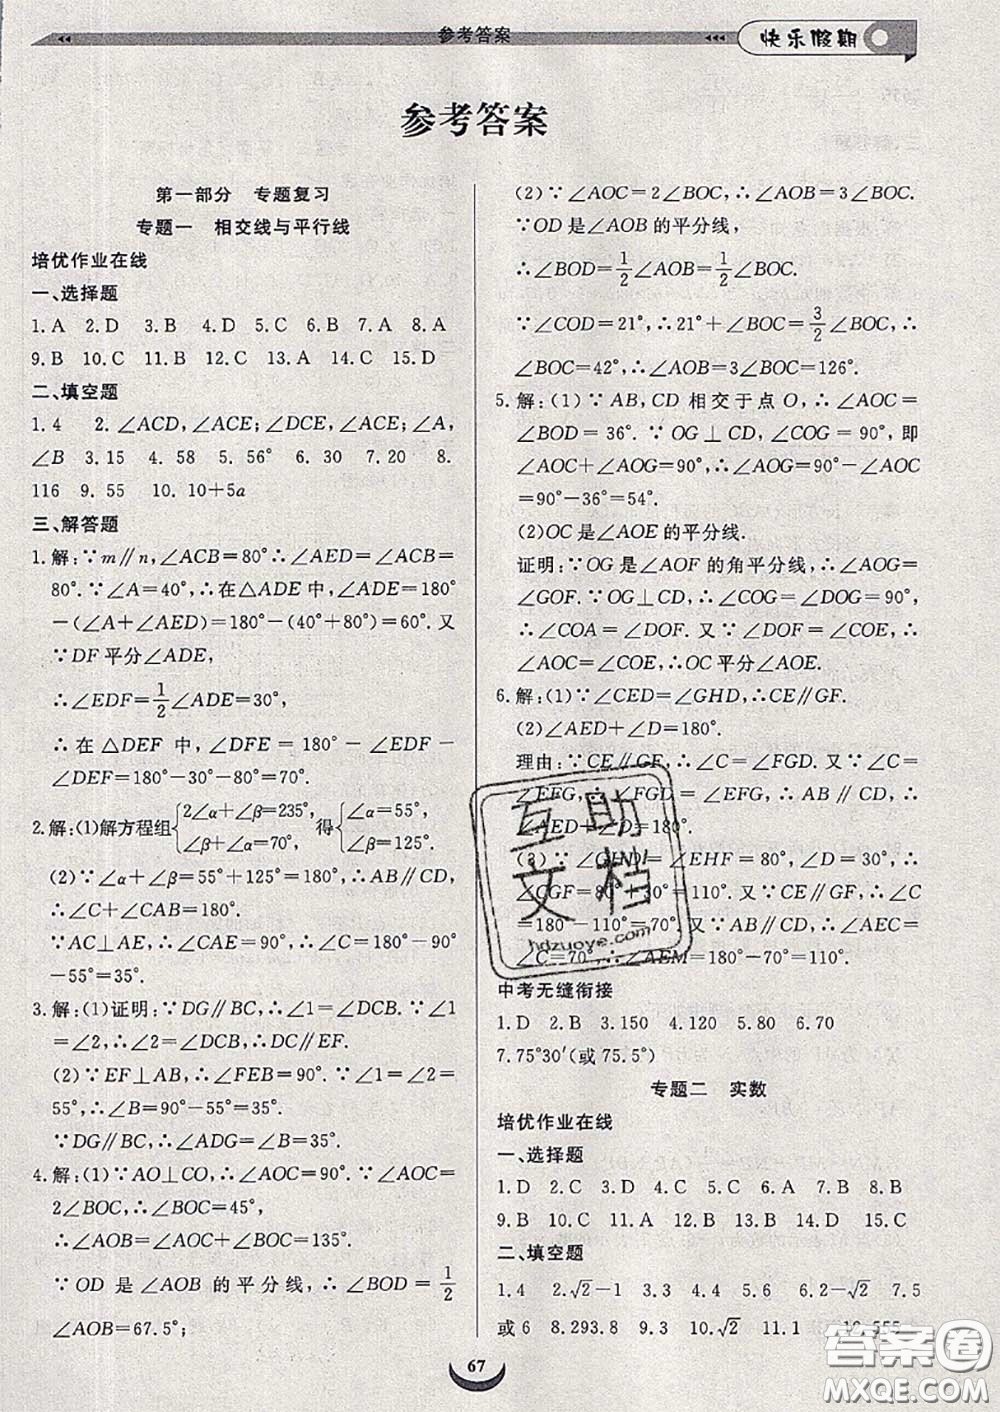 参考答案
快乐假期
参考答案
第一部分 专题复习
专题一 相交线与平行线
培优作业在线
一、选择题
1.A 2.D 3.B 4.D 5.C 6.B 7.A 8.A
9.B 10.C 11.B 12.C 13.A 14.C 15.D
二、填空题
1.4 2.∠ACD,∠ACE;∠DCE,∠ACE;∠A,
∠B 3.15 4.58 5.56° 6.30 7.20 8.
116 9.55 10.10+5a
三、解答题
1.解:∵m∥n,∠ACB=80°∴∠AED=∠ACB=
80°.∵∠A=40°,∴在△ADE中,∠ADE=180°
-(∠A+∠AED)=180°-(40°+80°)=60°.又
∵DF平分∠ADE,
∴∠EDF=1/2∠ADE=30°,
∴在△DEF中,∠DFE=180°-∠EDF-
∠DEF=180°-30°-80°=70°.
2.解:(1)解方程组{2∠α+∠β=235°, ∠β+∠α=70°, 得{∠α=55°, ∠β=125°.
(2)∵∠α+∠β=55°+125°=180°.∴AB∥CD,
∴∠C+∠CAB=180°.
∵AC⊥AE,∴∠CAE=90°,∴∠C=180°-90°
-55°=35°.
3.解:(1)证明:∵DG∥BC,∴∠1=∠DCB.∵∠1
=∠2,∴∠2=∠DCB,∴DC∥EF.
(2)∵EF⊥AB,∴∠FEB=90°.∵∠1=∠2=
55°,∴∠B=90°-55°=35°.
∵DG∥BC,∴∠ADG=∠B=35°.
4.解:(1)∵AO⊥CO,∴∠AOC=90°.∵∠AOC=
2∠BOC,∴∠BOC=45°,
∴∠AOB=∠AOC+∠BOC=135°.
∵OD是∠AOB的平分线,∴∠BOD=1/2
∠AOB=67.5°;
(2)∵∠AOC=2∠BOC,∴∠AOB=3∠BOC.
∵OD是∠AOB的平分线,
∴∠BOD=1/2∠AOB=1/2∠BOC.
∵∠COD=21°,∴21°+∠BOC=3/2∠BOC,∴
∠BOC=42°,∴∠AOB=3∠BOC=126°.
5.解:(1)∵AB,CD相交于点O,∴∠AOC=
∠BOD=36°.∵OG⊥CD,∠COG=90°,即
∠AOC+∠AOG=90°,∴∠AOG=90°-∠AOC
=90°-36°=54°.
(2)OC是∠AOE的平分线.
证明:∵OG是∠AOF的角平分线,∴∠AOG=
∠GOF.∵OG⊥CD,∴∠COG=∠DOG=90°,
∴∠COA=∠DOF.又∵∠DOF=∠COE,∴
∠AOC=∠COE,∴OC平分∠AOE.
6.解:(1)∵∠CED=∠GHD,∴CE∥GF.
(2)∠AED+∠D=180°.
理由:∵CE∥GF,∴∠C=∠FGD.又∵∠C=
∠EFG,∴∠FGD=∠EFG,∴AB∥CD,∴
∠AED+∠D=180°.
(3)∵∠GHD=∠EHF=80°,∠D=30°,∴
∠CGF=80°+30°=110°.又∵CE∥GF,∴∠C
=180°-110°=70°.又∵AB∥CD,∴∠AEC=
∠C=70°,∴∠AEM=180°-70°=110°.
中考无缝衔接
1.D 2.B 3.150 4.120 5.80 6.70
7.75°30′(或75.5°)
专题二 实数
培优作业在线
一、选择题
1.D 2.C 3.D 4.C 5.A 6.D 7.B 8.B
9.B 10.C 11.A 12.B 13.D 14.D 15.C
二、填空题
1.4 2.√2-1 3.3 4.10 5.4 6.2-√2 7.5
或6 8.293.8 9.3 10.√2 11.1 12.555
67
互助
文档
hdzuoye.com
答案圈
MXQE.COM